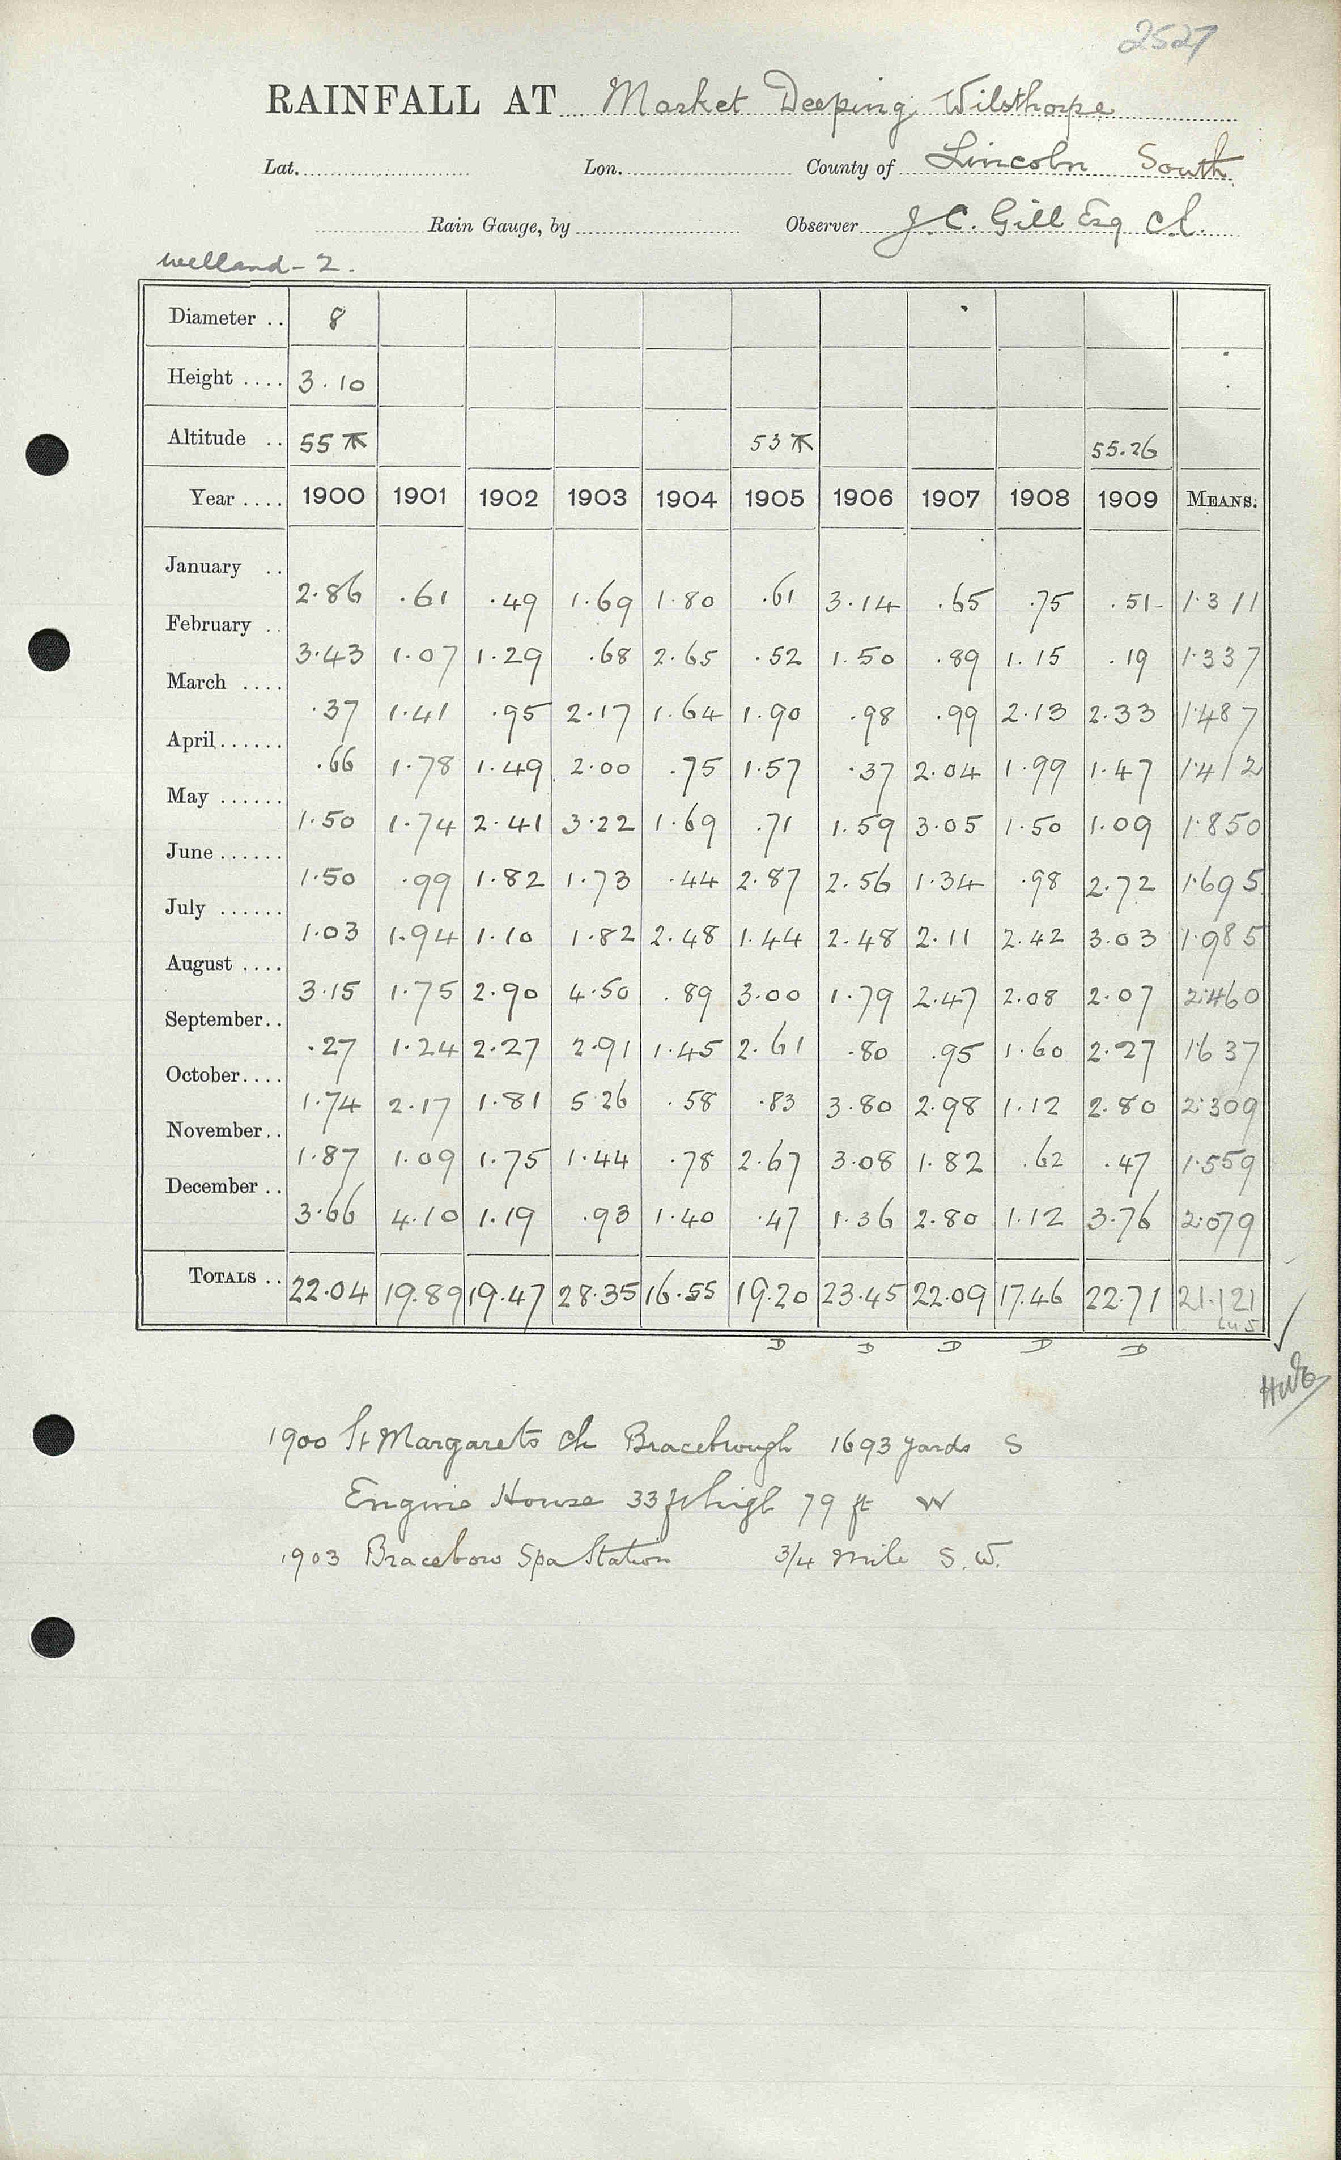 2527
RAINFALL AT Market Deeping Wilsthorpe
Lat. Lon. County of Lincoln South
Rain Gauge, by Observer J. C. Gill Esq
Welland - 2.
Diameter .. 8
Height .... 3.10
Altitude .. 55 53 55.26
Year .... 1900 1901 1902 1903 1904 1905 1906 1907 1908 1909 MEANS.
January .. 2.86 .61 .49 1.69 1.80 .61 3.14 .65 .75 .51 1.311
February .. 3.43 1.07 1.29 .68 2.65 .52 1.50 .89 1.15 .19 1.337
March .... .37 1.41 .95 2.17 1.64 1.90 .98 .99 2.13 2.33 1.487
April...... .66 1.78 1.49 2.00 .75 1.57 .37 2.04 1.99 1.47 1.412
May ...... 1.50 1.74 2.41 3.22 1.69 .71 1.59 3.05 1.50 1.09 1.850
June ...... 1.50 .99 1.82 1.73 .44 2.87 2.56 1.34 .98 2.72 1.695
July ...... 1.03 1.94 1.10 1.82 2.48 1.44 2.48 2.11 2.42 3.03 1.985
August .... 3.15 1.75 2.90 4.50 .89 3.00 1.79 2.47 2.08 2.07 2.460
September.. .27 1.24 2.27 2.91 1.45 2.61 .80 .95 1.60 2.27 1.637
October.... 1.74 2.17 1.81 5.26 .58 .83 3.80 2.98 1.12 2.80 2.309
November.. 1.87 1.09 1.75 1.44 .78 2.67 3.08 1.82 .62 .47 1.559
December .. 3.66 4.10 1.19 .93 1.40 .47 1.36 2.80 1.12 3.76 2.079
TOTALS .. 22.04 19.89 19.47 28.35 16.55 19.20 23.45 22.09 17.46 22.71 21.121
D D D D D
1900 St Margarets Ch Braceborough 1693 yards S
Engine House 33 ft high 79 ft W
1903 Braceboro Spa Station 3/4 mile S.W.